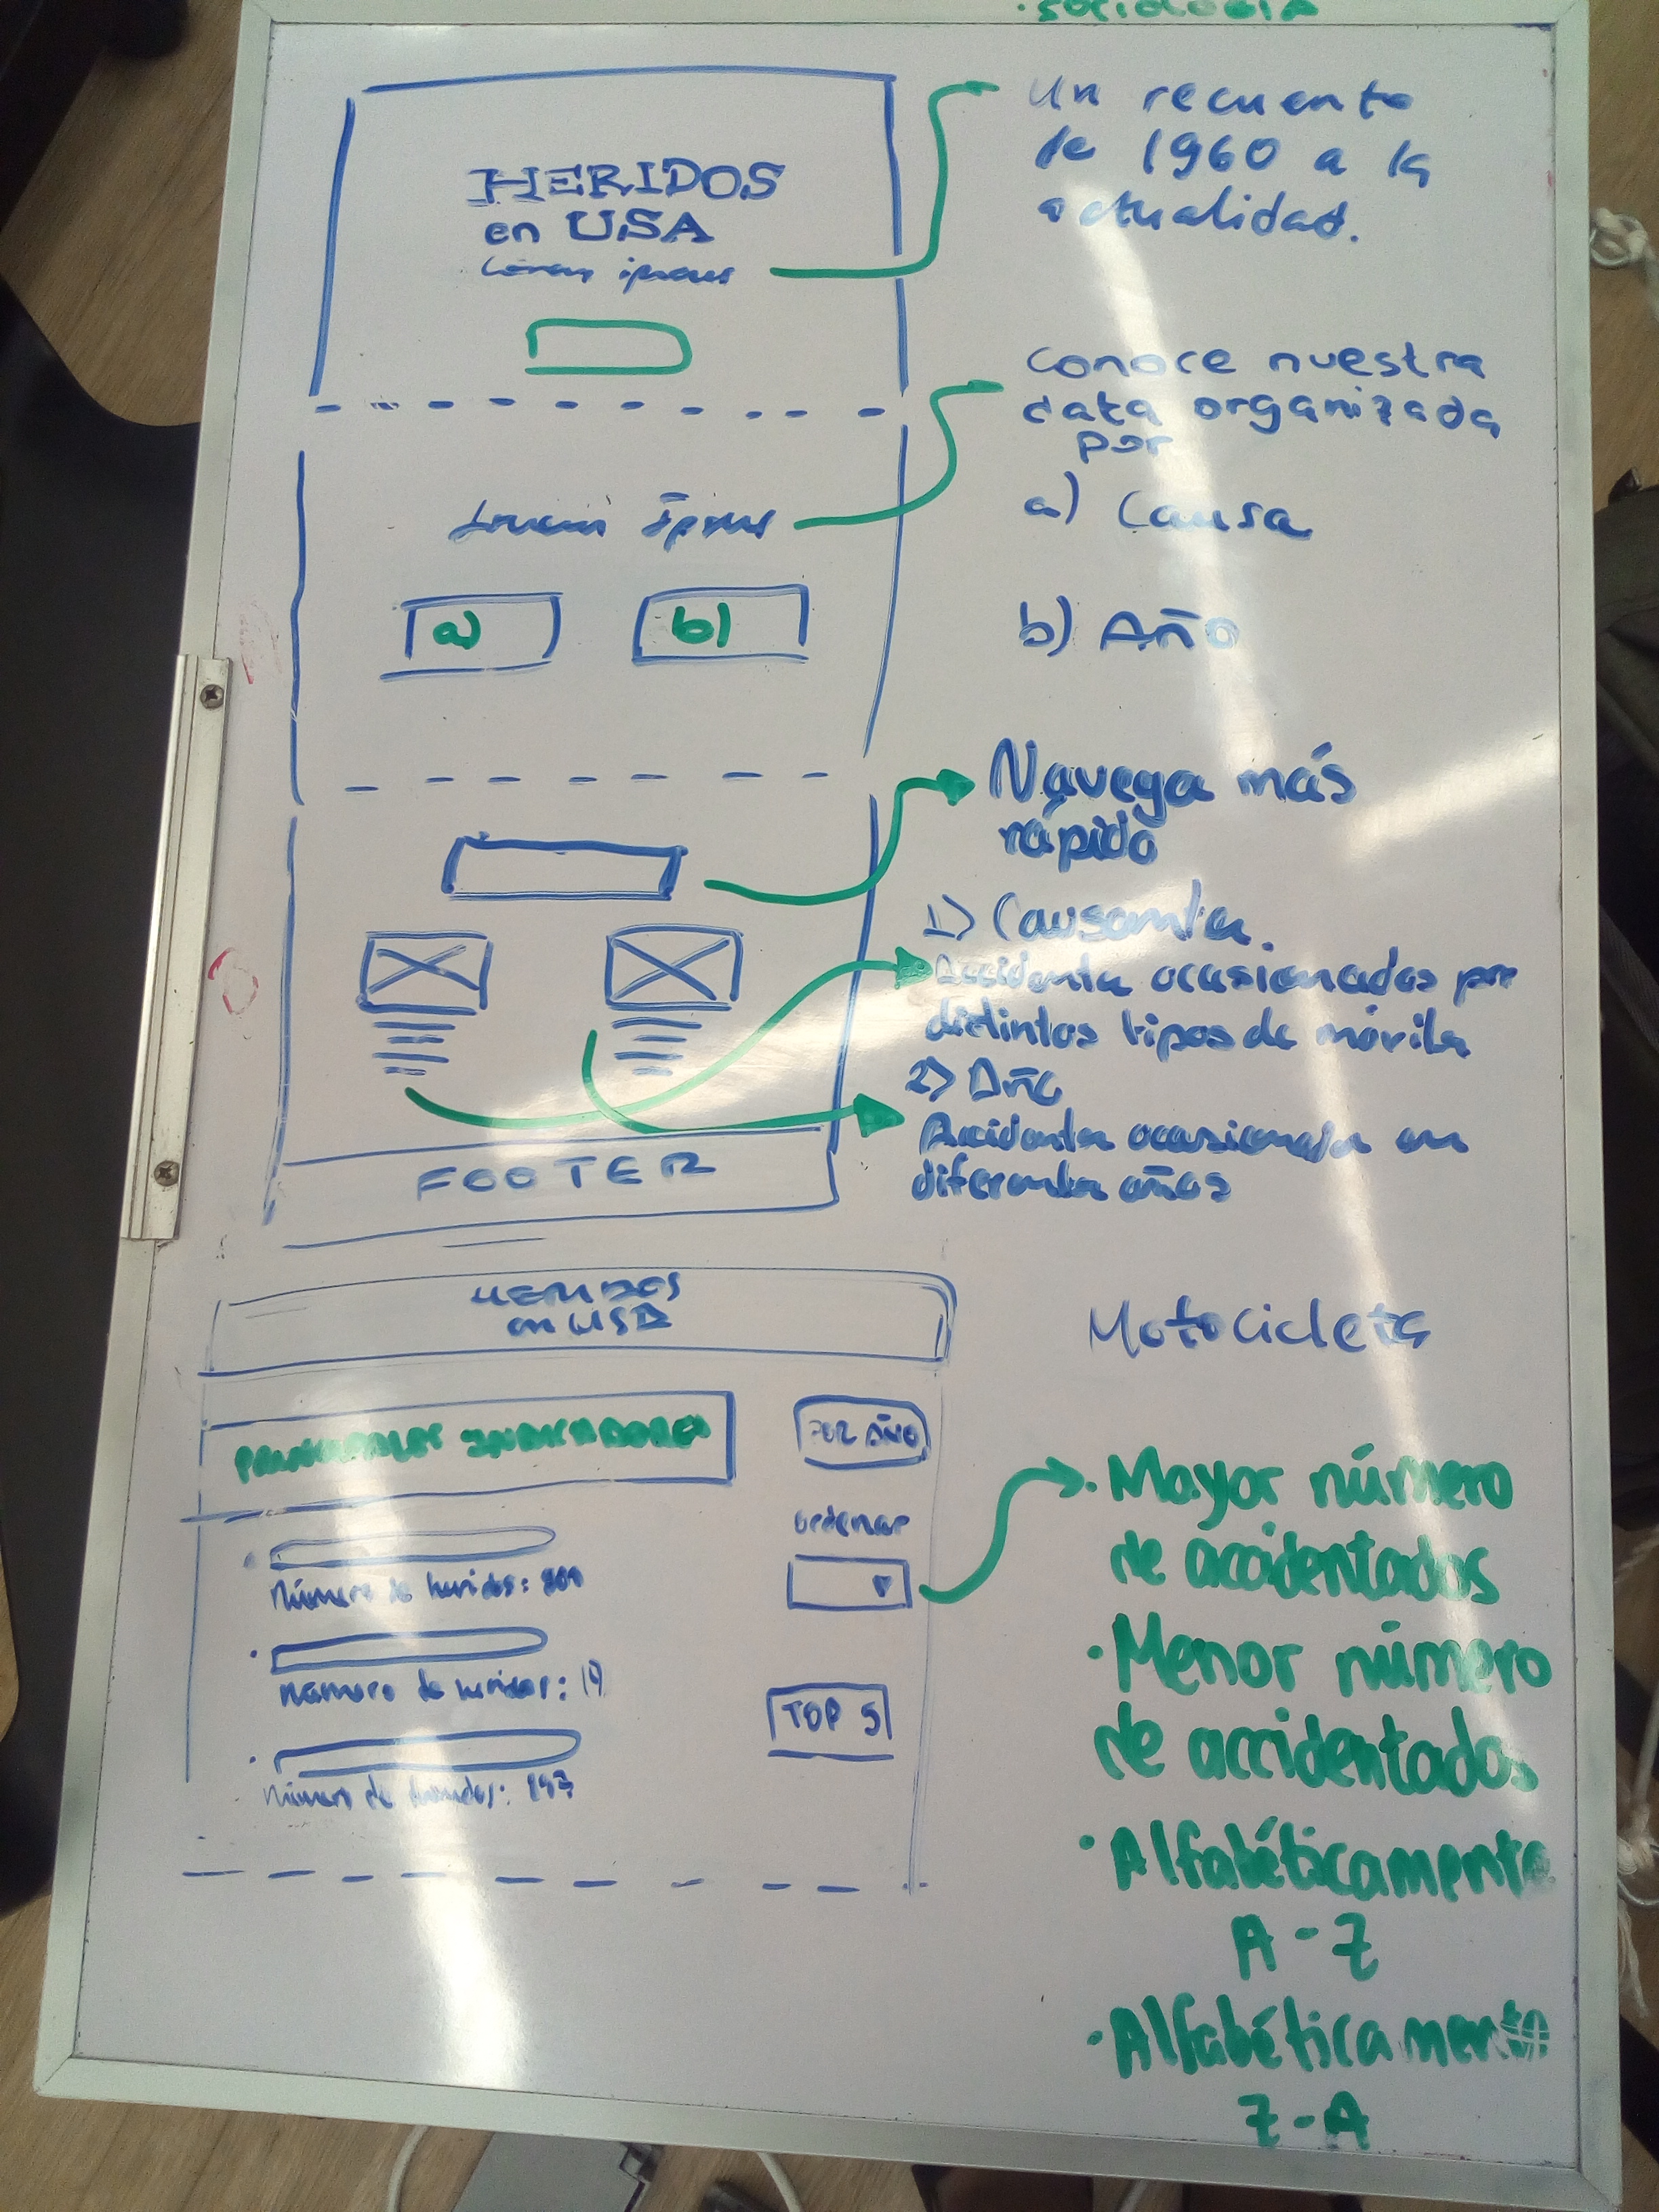 · SOCIOLOGIA
HERIDOS
en USA
Lorem ipsum
Un recuento
de 1960 a la
actualidad.
Conoce nuestra
data organizada
por
a) Causa
b) Año
Lorem ipsum
a)
b)
Navega más
rápido
1) Causante.
Accidente ocasionados por
distintos tipos de móviles
2) Año
Accidentes ocasionados en
diferentes años
FOOTER
HERIDOS
en USA
PRINCIPALES INDICADORES
POR AÑO
ordenar
Número de heridos: 800
Número de heridos:
Número de heridos:
TOP 5
Motocicleta
· Mayor número
de accidentados
· Menor número
de accidentados
· Alfabéticamente
A - Z
· Alfabéticamente
Z - A